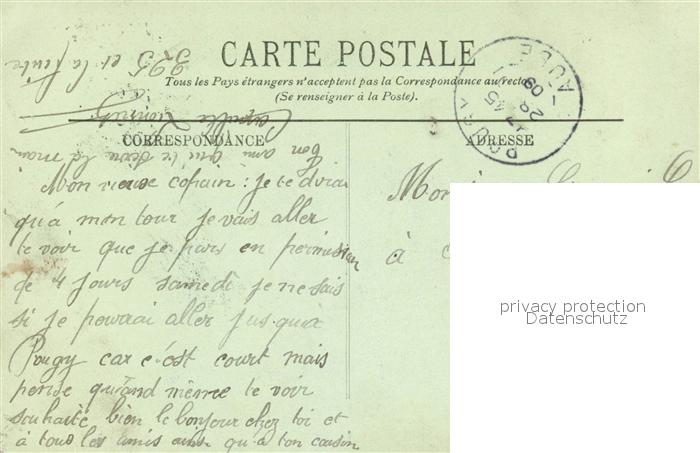 CARTE POSTALE
Tous les Pays étrangers n'acceptent pas la Correspondance au recto
(Se renseigner à la Poste).
CORRESPONDANCE
ADRESSE
Mon vieux copain : je te dirai
qu'à mon tour je vais aller
te voir que je pars en permission
de 4 jours samedi je ne sais
si je pourrai aller jusqu'à
Pougy car c'est court mais
pense quand même te voir
souhaite bien le bonjour chez toi et
à tous les amis ainsi qu'à ton cousin
bon ami qui te serre la main
325 et la
à
POUGY
AUBE
28
09
privacy protection
Datenschutz